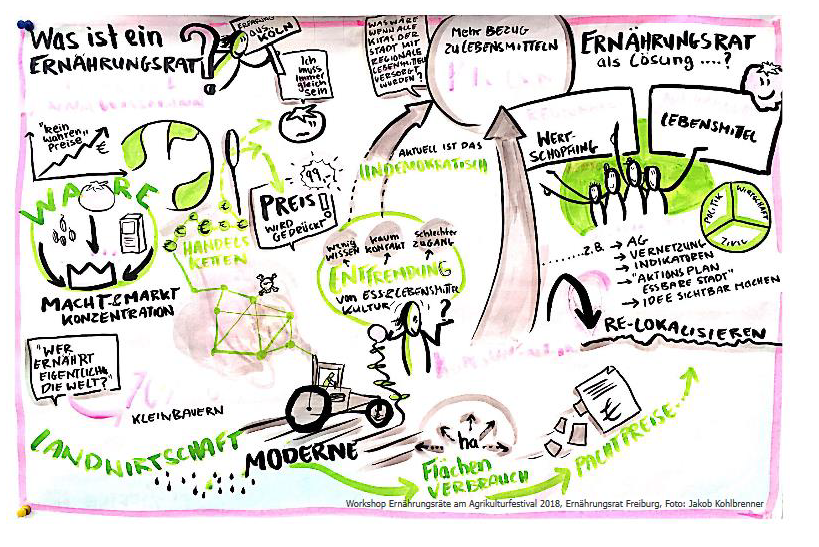 Was ist ein
ERNÄHRUNGSRAT?
ERFAHRUNG
AUS
KÖLN
Ich
muss
immer
gleich
sein
WAS WÄRE
WENN ALLE
KITAS DER
STADT MIT
REGIONALE
LEBENSMITTEL
VERSORGT
WURDEN?
Mehr BEZUG
ZU LEBENSMITTELN
ERNÄHRUNGSRAT
als Lösung ....?
WERT-
SCHÖPFUNG
LEBENSMITTEL
"kein
wahren"
Preise
€
WARE
MACHT & MARKT
KONZENTRATION
HANDELS
KETTEN
99,-
PREIS!
WIRD
GEDRÜCKT
AKTUELL IST DAS
UNDEMOKRATISCH
wenig
WISSEN
kaum
KONTAKT
Schlechter
ZUGANG
ENTFREMDUNG
von ESS & LEBENSMITTEL
KULTUR
?
POLITIK
WIRTSCHAFT
ZIVIL
........ z.B. → AG
→ VERNETZUNG
→ INDIKATOREN
→ "AKTIONSPLAN
ESSBARE STADT"
→ IDEE SICHTBAR MACHEN
RE-LOKALISIEREN
"WER
ERNÄHRT
EIGENTLICH
DIE WELT?"
KLEINBAUERN
LANDWIRTSCHAFT
MODERNE
ha
Flächen
VERBRAUCH
€
PACHTPREISE
Workshop Ernährungsräte am Agrikulturfestival 2018, Ernährungsrat Freiburg, Foto: Jakob Kohlbrenner